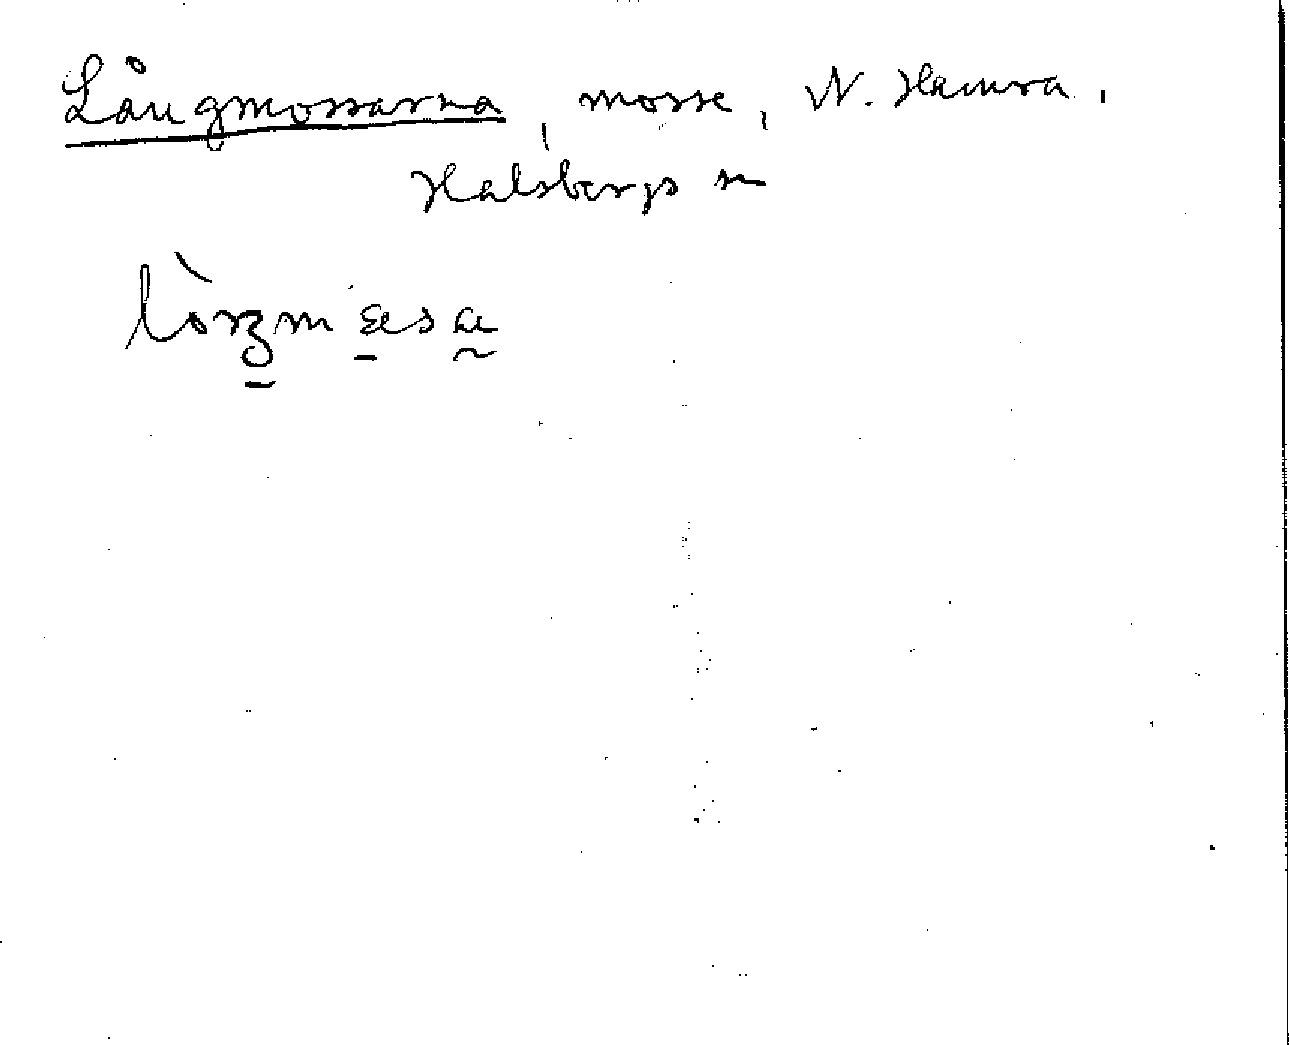 Långmossarna, mosse, N. Hamra,
Halsbergs sn
lòrʒmæsa